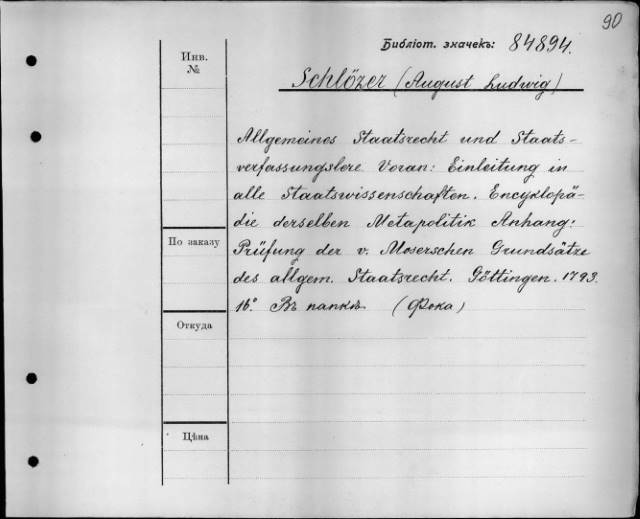 90
Библіот. значекъ: 84894.
Инв.
№
Schlözer (August Ludwig)
Allgemeines Staatsrecht und Staats-
verfassungslere Voran: Einleitung in
alle Staatswissenschaften. Encyklopä-
die derselben Metapolitik Anhang:
По заказу
Prüfung der v. Moserschen Grundsätze
des allgem. Staatsrecht. Göttingen. 1793.
16° Въ папкѣ (Фока)
Откуда
Цѣна